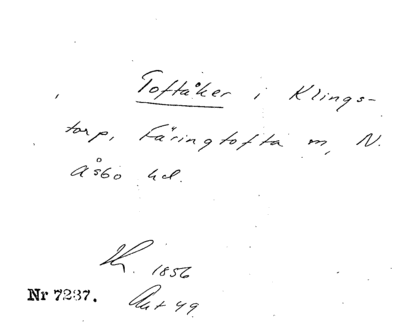 Toftåker i Klings-
torp, Färingtofta sn, N.
Åsbo hd.
1856
Nr 7237. Akt 49